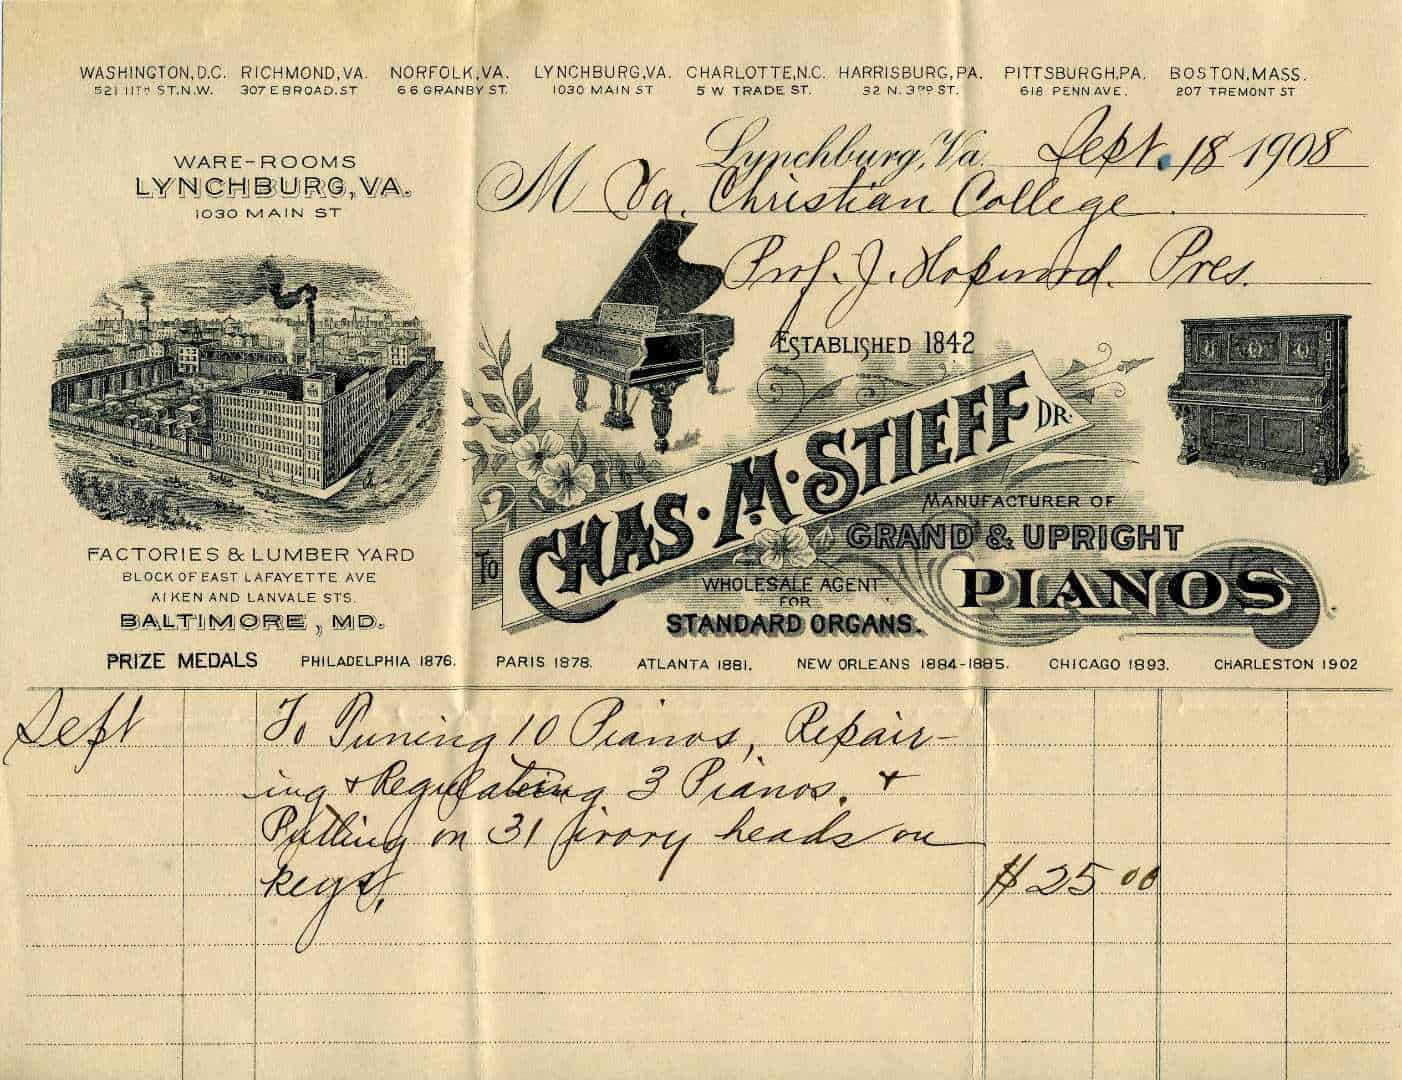 WASHINGTON, D.C. RICHMOND, VA. NORFOLK, VA. LYNCHBURG, VA. CHARLOTTE, N.C. HARRISBURG, PA. PITTSBURGH, PA. BOSTON, MASS.
521 11TH ST. N.W. 307 E BROAD. ST 66 GRANBY ST. 1030 MAIN ST 5 W TRADE ST. 32 N. 3RD ST. 618 PENN AVE. 207 TREMONT ST
WARE-ROOMS
LYNCHBURG, VA.
1030 MAIN ST
Lynchburg, Va. Sept. 18 1908
M Va. Christian College
Prof. J. Hopwood. Pres.
ESTABLISHED 1842
TO CHAS. M. STIEFF DR.
MANUFACTURER OF
GRAND & UPRIGHT
PIANOS
WHOLESALE AGENT
FOR
STANDARD ORGANS.
FACTORIES & LUMBER YARD
BLOCK OF EAST LAFAYETTE AVE
AIKEN AND LANVALE STS.
BALTIMORE, MD.
PRIZE MEDALS PHILADELPHIA 1876. PARIS 1878. ATLANTA 1881. NEW ORLEANS 1884-1885. CHICAGO 1893. CHARLESTON 1902
Sept To Tuning 10 Pianos, Repair-
ing & Regulating 3 Pianos. &
Putting on 31 ivory heads on
keys, $25 00